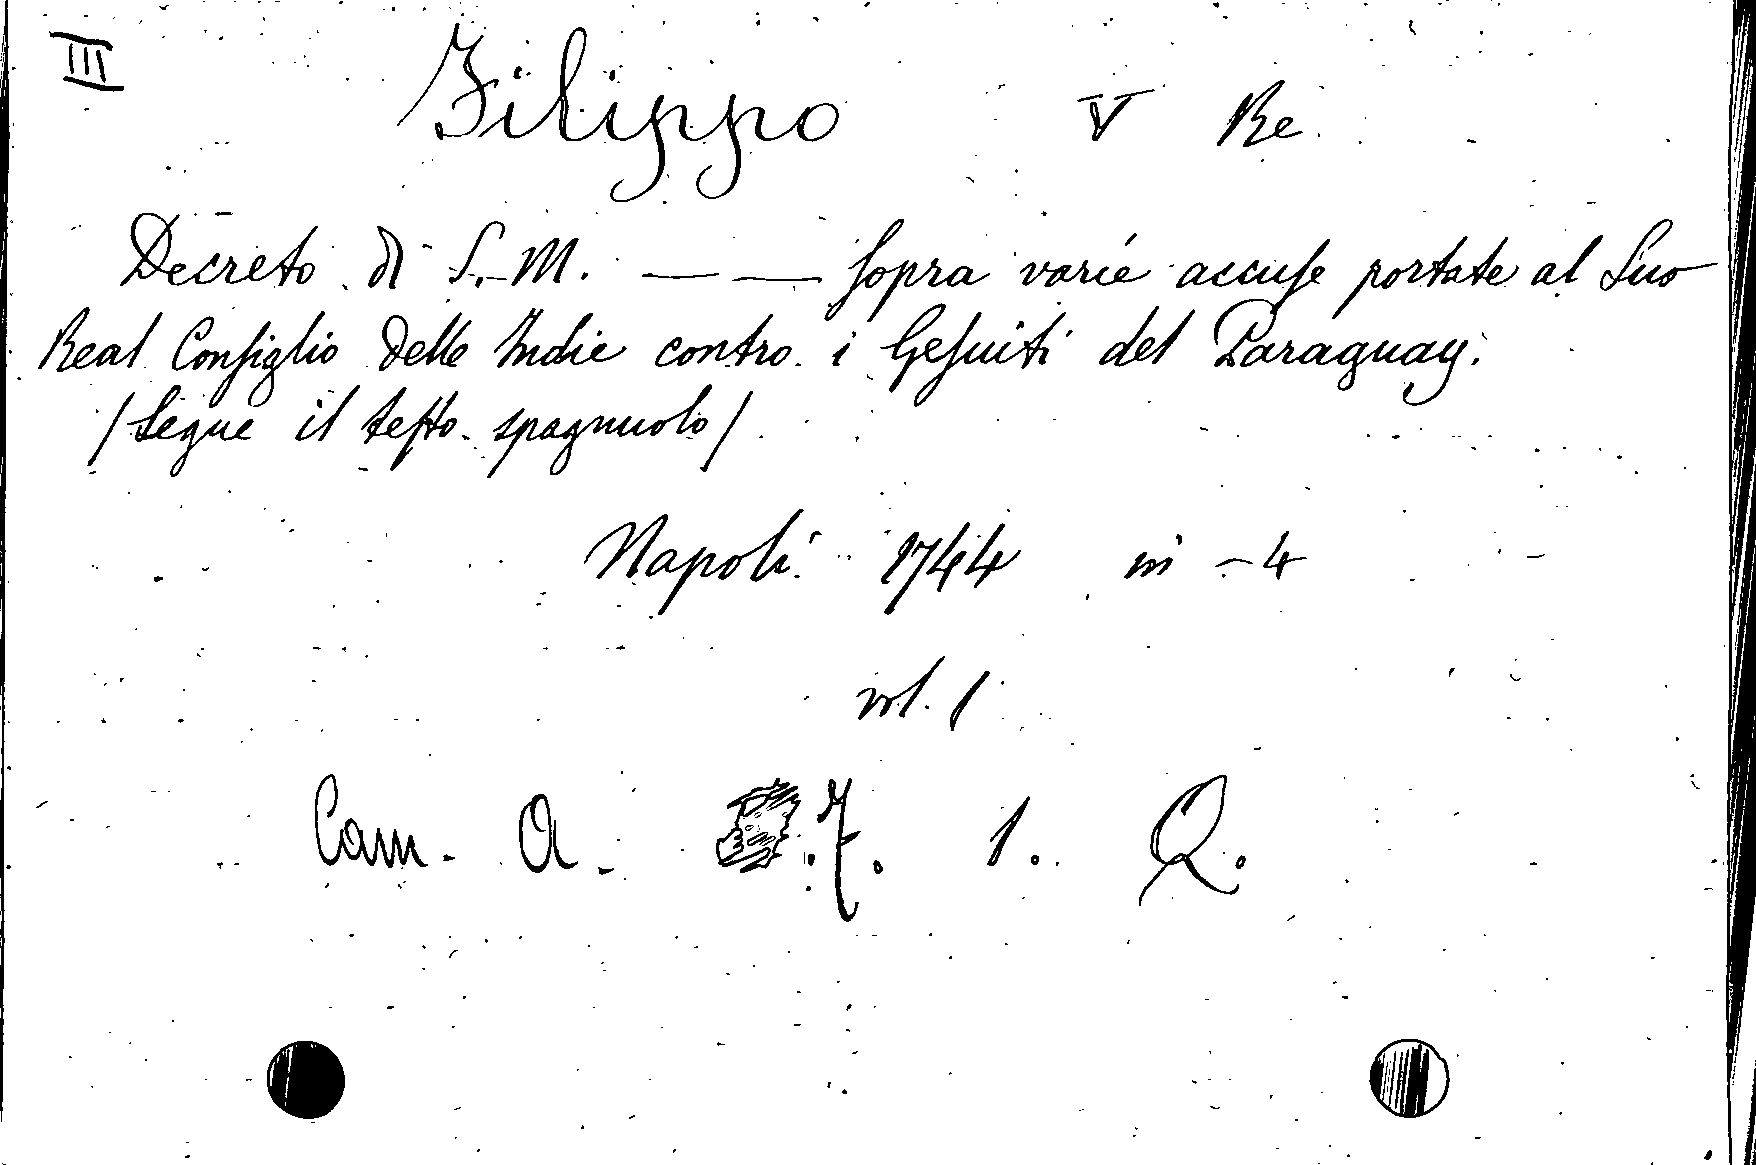 III
Filippo V Re
Decreto di S. M. — — sopra varie accuse portate al Suo
Real Consiglio delle Indie contro i Gesuiti del Paraguay.
/Segue il testo spagnuolo/
Napoli 1744 in - 4
vol. 1
Cam. A. 7. 1. Q.